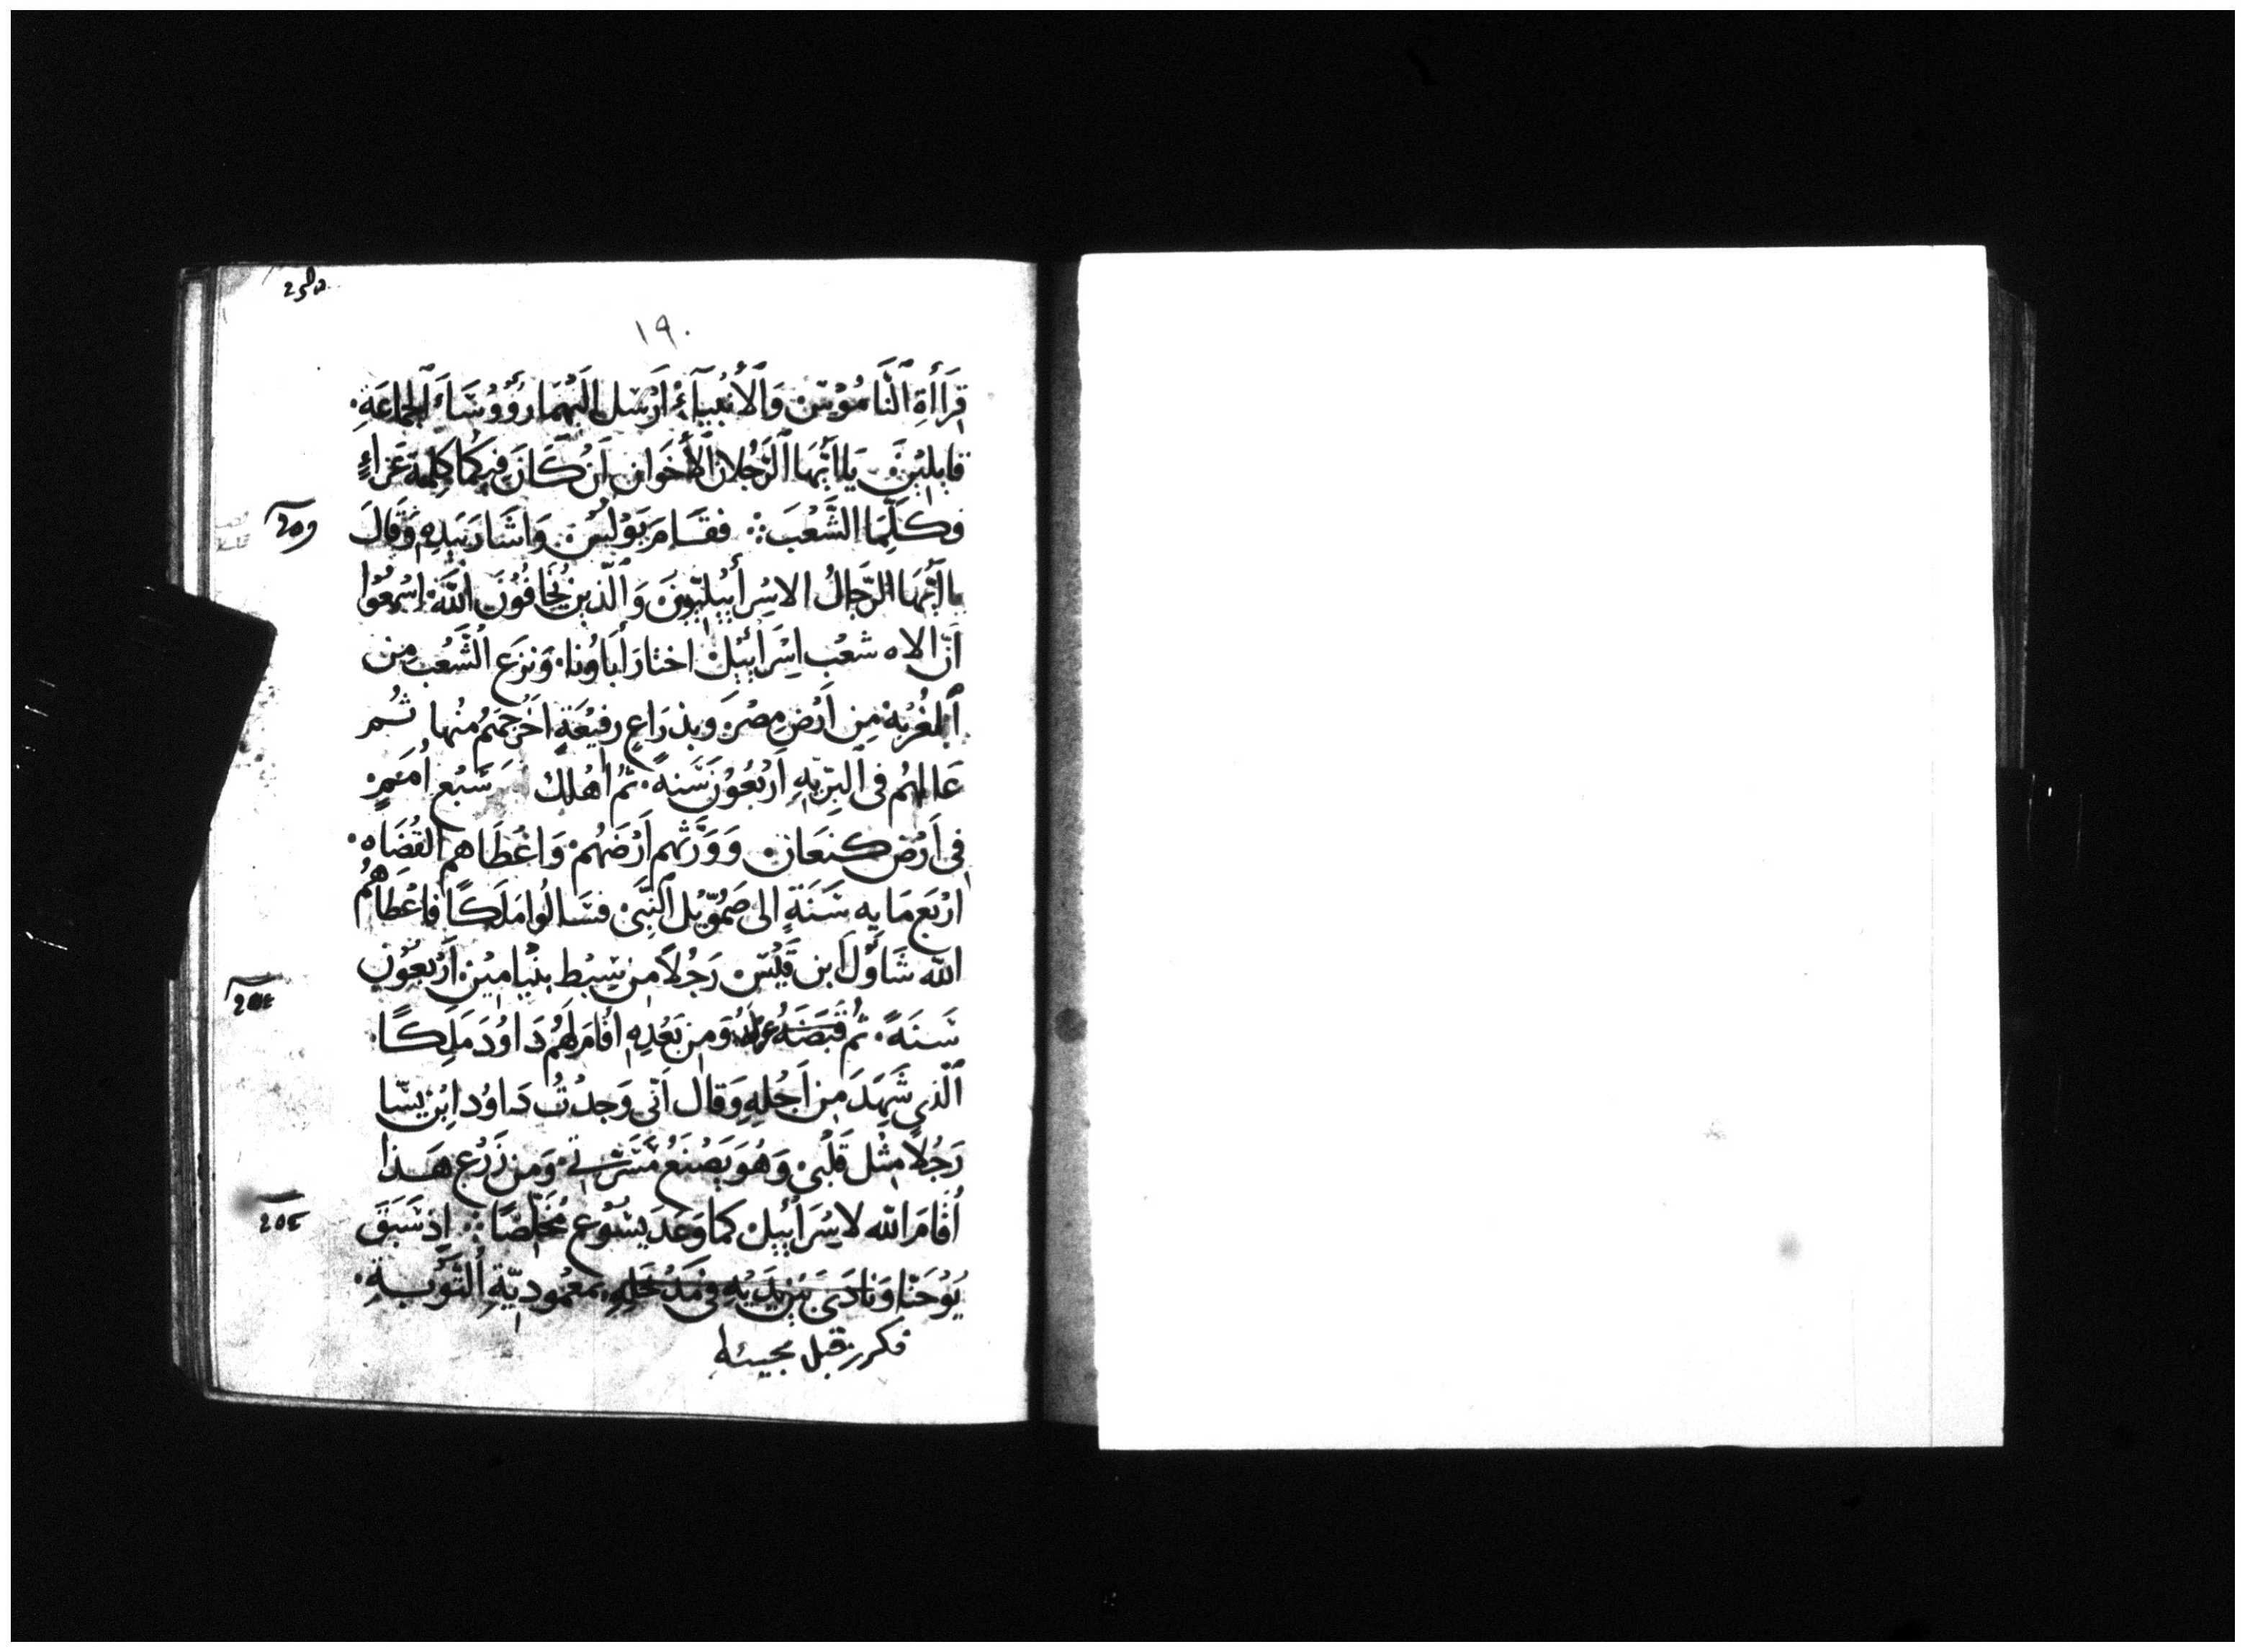 ١٩٠
قِرَاأَةِ ٱلنَّامُوْسْ وَٱلْأَنْبِيَآءْ أَرْسَل إِلَيْهُمَا رُؤُوُسَاءَ ٱلْجَمَاعَةِ.
قَايِلِيْنَ يَا أَيُّهَا ٱلرَّجُلَانِ ٱلْأَخَوَانِ إِنْ كَانَ فِيكُمَا كِلِمَة عَزَاءٍ
فَكَلِّمَا الشَّعْبَ ܀ فقَامَ بَوْلُسْ وَاشَارَ بِيَدِهِ وَقَالَ
يَا أَيُّهَا الرِّجَالُ الاسْرَأَيِيْلِيّونَ وَٱلَّذِينَ يُخَافُوْنَ اللَّهَ اسْمِعُوْا
أَنّ الاه شَعْب اسْرَأَيِيْلْ اختَارَ أَبَاوُنا. وَنزَع الشَّعْب من
ٱلغُرْبَه مِن أَرْضِ مِصْرَ وَبِذِرَاعٍ رَفِيْعَةٍ اخْرَجَهُم مِنْهَا ثُم
عَالَهُم فى ٱلبَرِّيَّهِ أَرْبَعُوْنَ سَنَةً. ثُمّ أَهْلَك سَبْع أُمَمٍ
فى أَرْض كنعَان وَوَرَّثَهم أَرْضَهُمْ وَاعْطَاهم القُضَاه.
ارْبَع مَايه سَنَةٍ الى صَمُوّيْل ٱلنَّبِىْ فسَالُوا مَلَكًا فَاعْطَاهُمُ
اللّه شَاوُل ابن قَيْسْ رَجُلاً من سِبْط بنْيَامِيْن أَرْبَعُوْنَ
سَنَةً. ثُم قَبَضَهُ وَمِن بَعْدِهِ أَقَامَ لَهُم دَاوُدَ مَلِكًا.
ٱلّذِي شَهَدَ مِن اَجْلِهِ وَقَال اَنّى وَجَدْتُ دَاوُد ابْن يسّا
رَجُلاً مِثْل قَلْبىْ وَهُوَ يَصْنَعُ مَسَرّتِي وَمِن زَرْع هَذا
أَقَامَ اللّه لاسْرَأَيِيْل كما وَعَد يسُوْع مُخَلِّصًا ܀ إِذ سَبَقَ
يُوْحَنّا وَنَادَى بَيْن يَدَيْهِ فى مَدْخَلِهِ بمَعْمُودِيّةِ ٱلتَّوْبَةِ.
فكرز قبل مجيئه